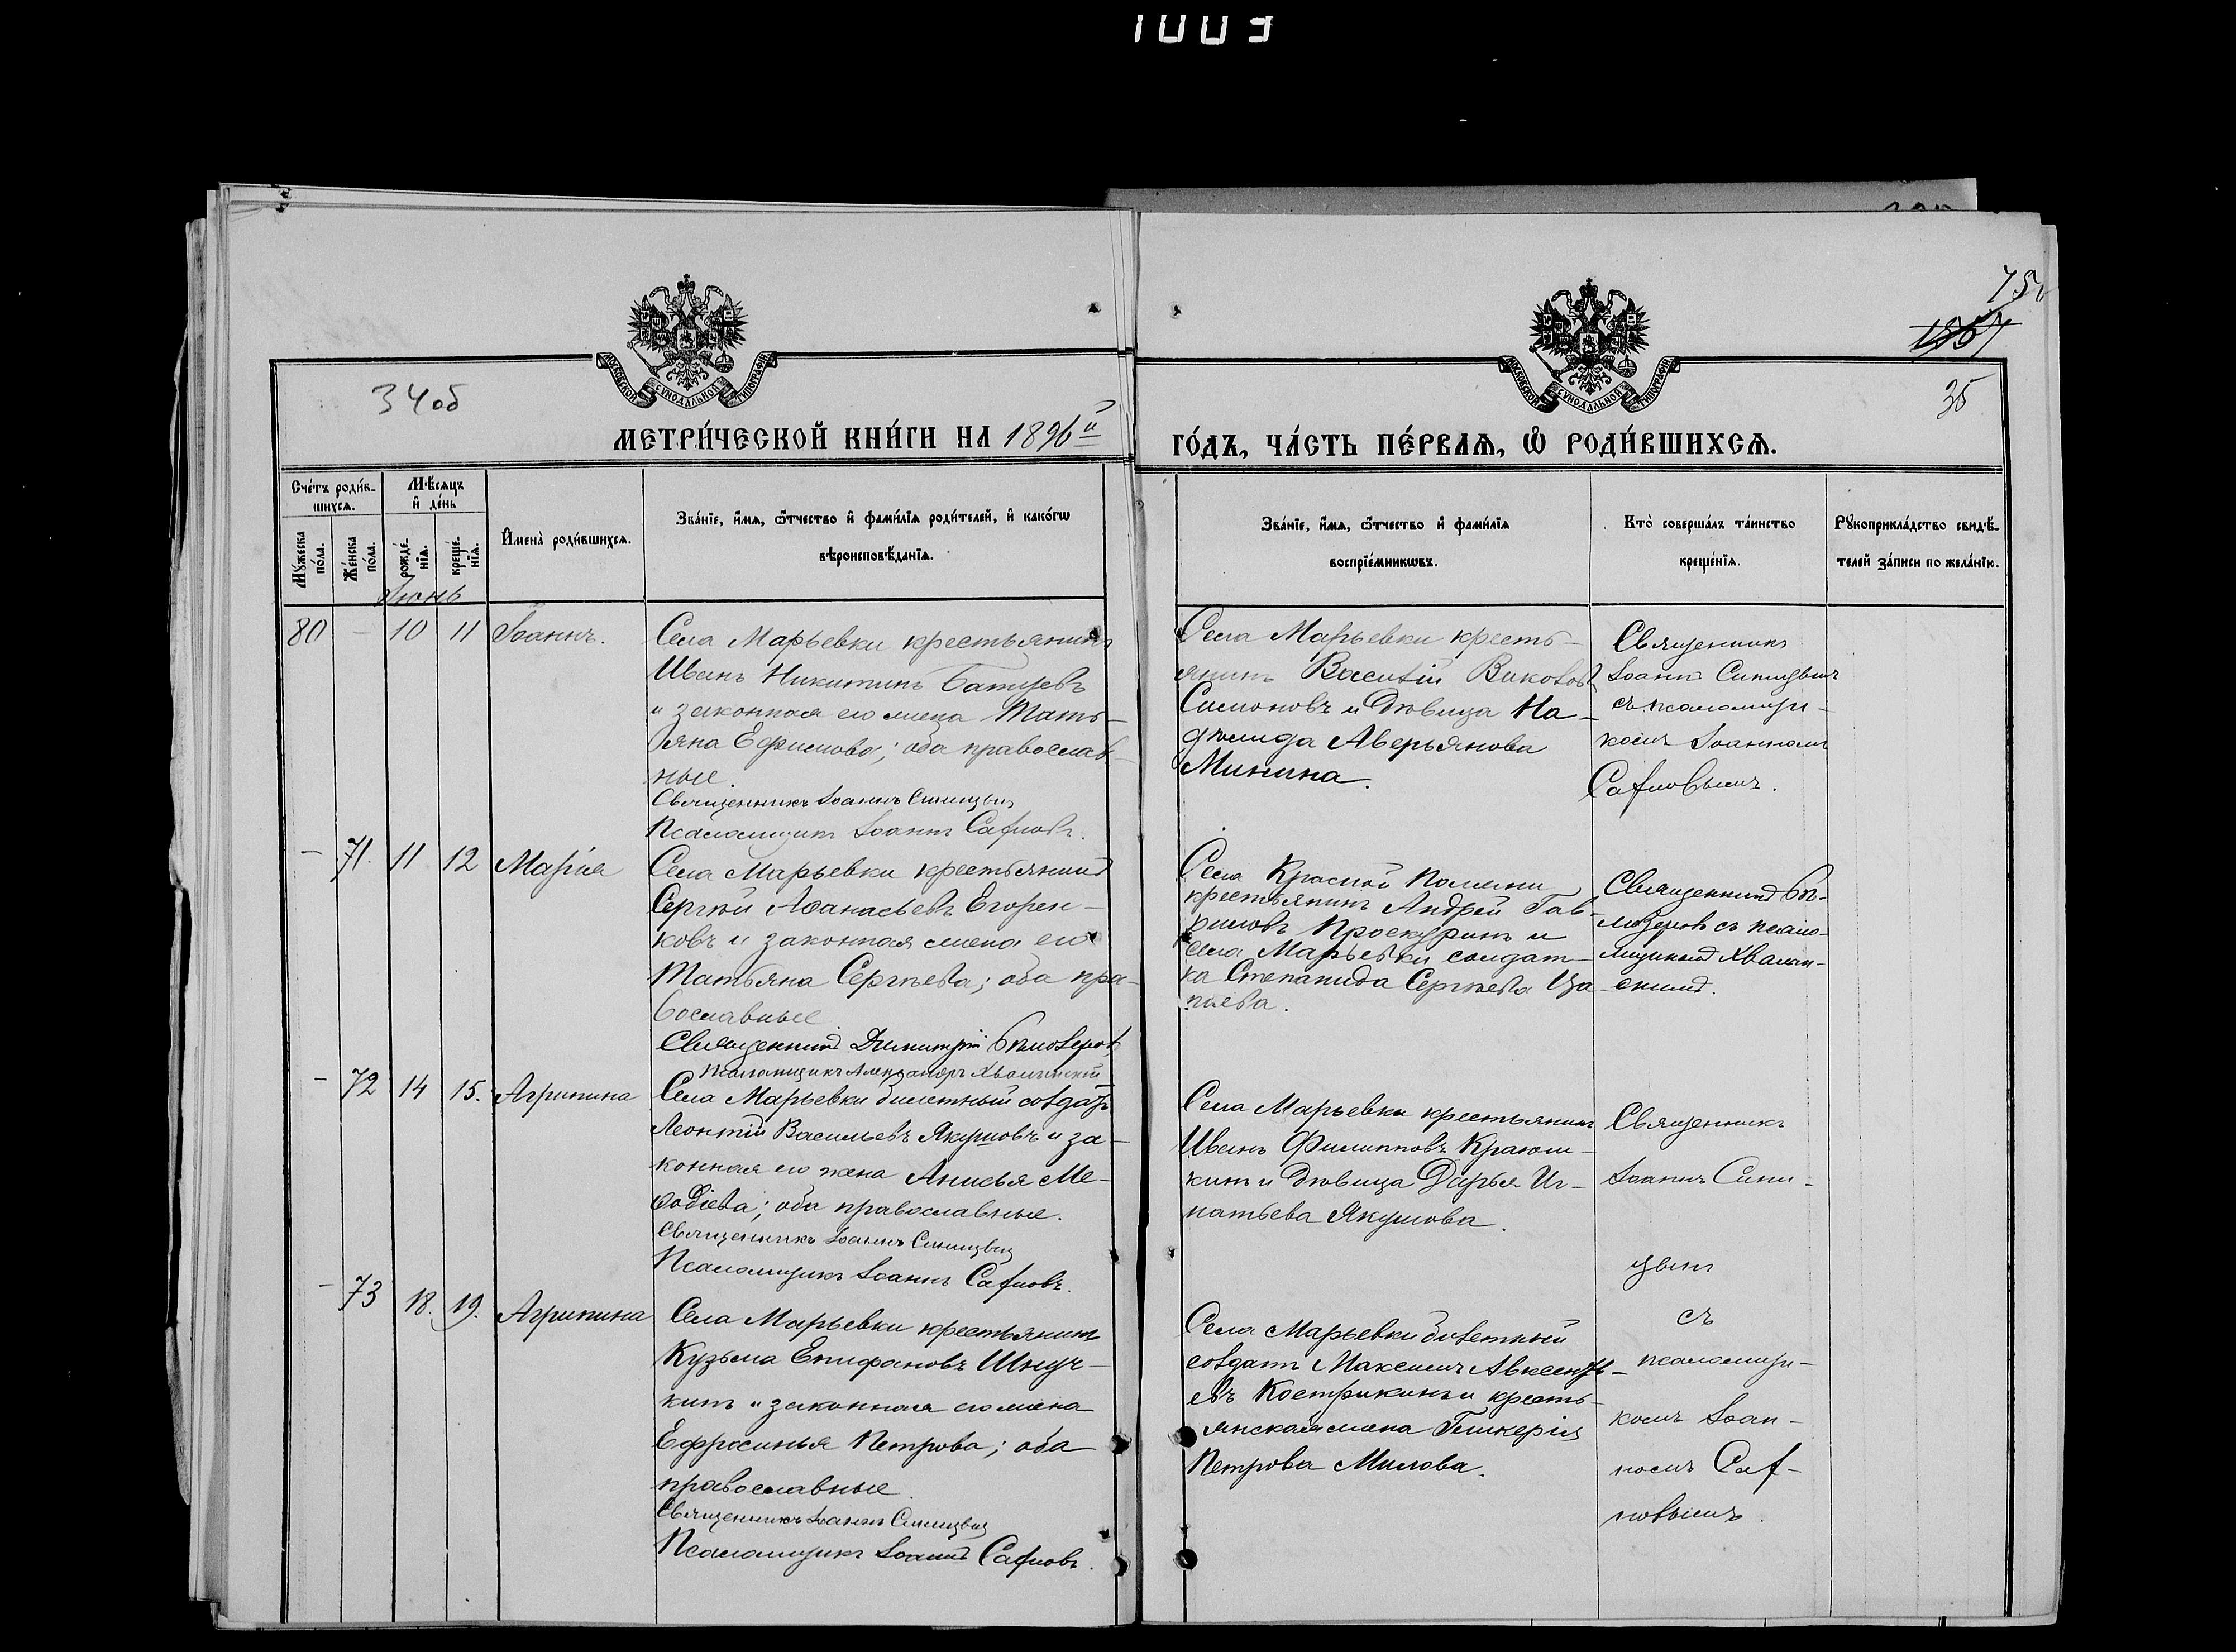 1003
75
1357
34об
35
МОСКОВСКОЙ СѴНОДАЛЬНОЙ ТИПОГРАФІИ
МОСКОВСКОЙ СѴНОДАЛЬНОЙ ТИПОГРАФІИ
МЕТРИ́ЧЕСКОЙ КНИ́ГИ НА 1896й
ГО́ДЪ, ЧА́СТЬ ПЕ́РВАѦ, Ѡ҆ РОДИ́ВШИХСѦ.
Сче́тъ роди́в-
шихсѧ.
Мѣ́сѧцъ
и҆ де́нь
Мꙋ́жеска
по́ла.
Же́нска
по́ла.
рожде́-
нїѧ.
креще́-
нїѧ.
И҆мена̀ роди́вшихсѧ.
Зва́нїе, и҆́мѧ, ѻ҆́тчество и҆ фами́лїѧ роди́телей, и҆ како́гѡ
вѣроисповѣ́данїѧ.
Зва́нїе, и҆́мѧ, ѻ҆́тчество и҆ фами́лїѧ
воспрїе́мникѡвъ.
Кто̀ соверша́лъ та́инство
креще́нїѧ.
Рꙋкоприкла́дство свидѣ́-
телей за́писи по жела́нїю.
Іюнь
80 - 10 11 Іоаннъ.
Села Марьевки крестьянинъ
Иванъ Никитинъ Батуевъ
и законная его жена Тать-
яна Ефимова; оба православ-
ные.
Священникъ Іоаннъ Синицынъ
Псаломщикъ Іоаннъ
Села Марьевки кресть-
янинъ Василій
Симоновъ и дѣвица На-
дежда Аверьянова
Минина.
Священникъ
Іоаннъ Синицынъ
съ псаломщи-
комъ Іоанномъ
- 71. 11 12 Марія
Села Марьевки крестьянинъ
Сергѣй Аѳанасьевъ Егорен-
ковъ и законная жена его
Татьяна Сергѣева; оба пра-
вославные
Священникъ Димитрій Бѣлозеровъ
Псаломщикъ Александръ Хвалынскій
Села Красной Поляны
крестьянинъ Андрей Гав-
риловъ Проскуринъ и
села Марьевки солдат-
ка Степанида Сергѣева Ца
паева.
Священникъ Бѣ-
лозеровъ съ псало-
мщикомъ Хвалын-
скимъ.
- 72 14 15. Агрипина
Села Марьевки билетный солдатъ
Леонтій Васильевъ Якушовъ и за-
конная его жена Анисья Ме-
ѳодіева; оба православные.
Священникъ Іоаннъ Синицынъ
Псаломщикъ Іоаннъ
Села Марьевки крестьянинъ
Иванъ Филипповъ Краюш-
кинъ и дѣвица Дарья Иг-
натьева Якушова.
Священникъ
Іоаннъ Сини-
цынъ
съ
псаломщи-
комъ Іоан-
номъ
- 73 18. 19. Агрипина
Села Марьевки крестьянинъ
Кузьма Епифановъ Шнуч-
кинъ и законная его жена
Ефросинья Петрова; оба
православные.
Священникъ Іоаннъ Синицынъ
Псаломщикъ Іоаннъ
Села Марьевки билетный
солдатъ Максимъ Авксенть-
евъ Кострикинъ и кресть-
янская жена Гликерія
Петрова Милова.